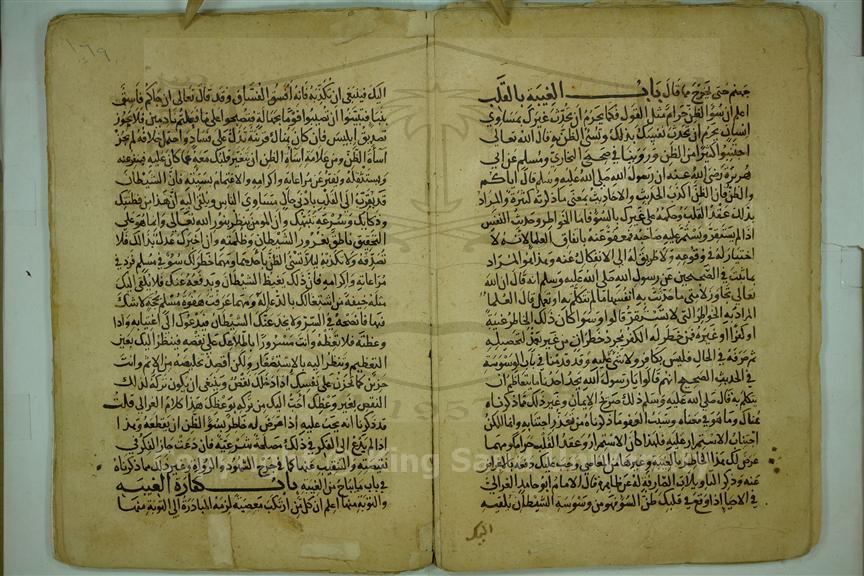 جهنم حتى يخرج مما قال باب الغيبة بالقلب
اعلم ان سوء الظن حرام مثل القول فكما يحرم ان تحدث غيرك بمساوي
انسان يحرم ان تحدث نفسك بذلك وتسئ الظن به قال الله تعالى
اجتنبوا كثيرا من الظن وروينا في صحيحي البخاري ومسلم عن ابي
هريرة رضي الله عنه ان رسول الله صلى الله عليه وسلم قال اياكم
والظن فان الظن اكذب الحديث والاحاديث بمعنى ما ذكرته كثيرة والمراد
بذلك عقد القلب وحكمه على غيرك بالسوء فاما الخواطر وحديث النفس
اذا لم يستقر ويستمر عليه صاحبه فمعفو عنه باتفاق العلما لانه لا
اختيار له في وقوعه ولا طريق له الى الانفكاك عنه وهذا هو المراد
بما ثبت في الصحيحين عن رسول الله صلى الله عليه وسلم انه قال ان الله
تعالى تجاوز لامتي ما حدثت به انفسها ما لم تتكلم به او تعمل قال العلما
المراد به الخواطر التي لا تستقر قالوا وسوا كان ذلك الخاطر غيبة
او كفرا او غيره فمن خطر له الكفر مجرد خطران من غير تعمد لتحصيله
ثم صرفه في الحال فليس بكافر ولا شي عليه وقد قدمنا في باب الوسوسة
في الحديث الصحيح انهم قالوا يا رسول الله يجد احدنا ما يتعاظم ان
يتكلم به قال صلى الله عليه وسلم ذلك صريح الايمان وغير ذلك مما ذكرناه
هناك وما هو في معناه وسبب العفو ما ذكرناه من تعذر اجتنابه وانما الممكن
اجتناب الاستمرار عليه فلهذا كان الاستمرار وعقد القلب حراما ومهما
عرض لك هذا الخاطر بالغيبة وغيرها من المعاصي وجب عليك دفعه بالاعراض
عنه وذكر التاويلات الصارفة له عن ظاهره قال الامام ابو حامد الغزالي
في الاحيا اذا وقع في قلبك ظن السوء فهو من وسوسة الشيطان يلقيه
اليك
١٦٩
اليك فينبغي ان تكذبه فانه افسق الفساق وقد قال تعالى ان جاكم فاسق
بنبا فتبينوا ان تصيبوا قوما بجهالة فتصبحوا على ما فعلتم نادمين فلا يجوز
تصديق ابليس فان كان هناك قرينة تدل على فساد واحتمل خلافه لم تجز
اساة الظن ومن علامة اساة الظن ان يتغير قلبك معه عما كان عليه فتنفر عنه
وتستثقله وتفتر عن مراعاته واكرامه والاغتمام بسيئته فان الشيطان
قد يقرب الى القلب بادنى خيال مساوي الناس ويلقي اليه ان هذا من فطنتك
وذكايك وسرعة تنبهك وان المومن ينظر بنور الله تعالى وانما هو على
التحقيق ناطق بغرور الشيطان وظلمته وان اخبرك عدل بذلك فلا
تصدقه ولا تكذبه ليلا تسئ الظن باحدهما ومهما خطر لك سوء في مسلم فزد في
مراعاته واكرامه فان ذلك يغيظ الشيطان ويدفعه عنك فلا يلقي اليك
مثله خيفة من اشتغالك بالدعا له ومهما عرفت هفوة مسلم بحجة لا شك
فيها فانصحه في السر ولا يخدعنك الشيطان فيدعوك الى اغتيابه واذا
وعظته فلا تعظه وانت مسرور باطلاعك على نقصه فينظر اليك بعين
التعظيم وتنظر اليه بالاستصغار ولكن اقصد تخليصه من الاثم وانت
حزين كما تحزن على نفسك اذا دخلك نقص وينبغي ان يكون تركه لذلك
النقص بغير وعظك احب اليك من تركه بوعظك هذا كلام الغزالي قلت
قد ذكرنا انه يجب عليه اذا عرض له خاطر بسوء الظن ان يقطعه وهذا
اذا لم تدع الى الفكر في ذلك مصلحة شرعية فان دعت جاز الفكر في
نقيصته والتنقيب عنها كما في جرح الشهود والرواة وغير ذلك مما ذكرناه
في باب ما يباح من الغيبة باب كفارة الغيبه
والتوبة منها اعلم ان كل من ارتكب معصية لزمه المبادرة الى التوبة منها